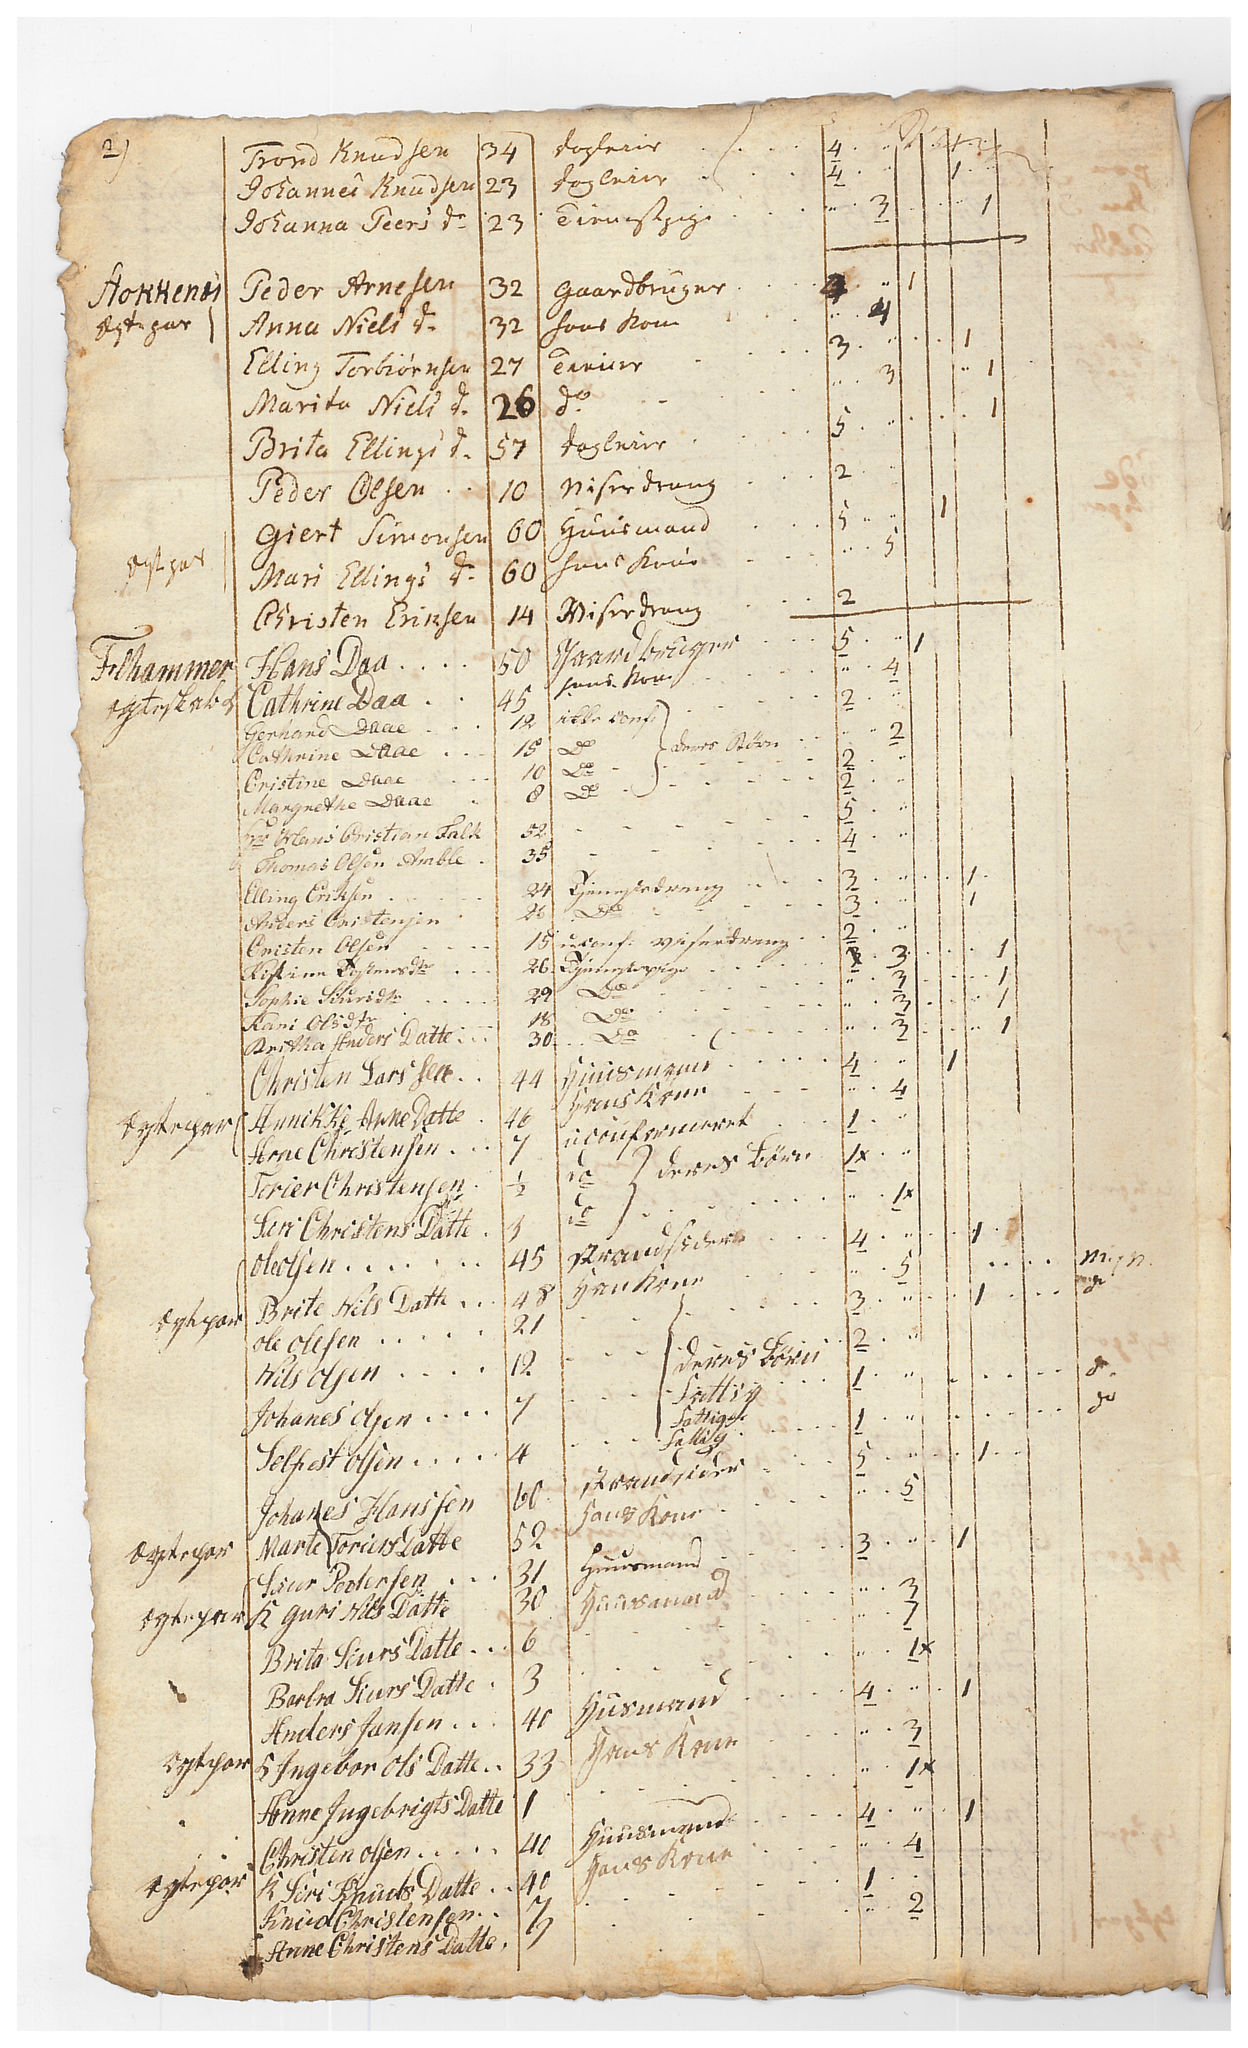 2)
Trond Knudsen 34 dagleier 4
Johannes Knudsen 23 dagleier 4 1
Johanna Peers dr 23 Tienestpige 3 1
Stokkenes Peder Arnesen 32 Gaardbruger 4 1
Egtepar Anna Niels dr 32 hans Kone 4
Elling Torbiørnsen 27 Tienier 3 1
Marita Niels dr 26 do 3 1
Brita Ellings dr 57 dagleier 5 1
Peder Olsen 10 Viserdrang 2
Giert Simonsen 60 Huusmand 5 1
Egtpar Mari Ellings dr 60 hans Kone 5
Christen Eriksen 14 Viserdrang 2
Felhammer Hans Daa 50 Gaardbruger 5 1
Egteskabs Cathrine Daa 45 hans Kone 4
Gerhard Daae 12 ikke conf: 2
Cathrine Daae 15 Do deres Børn 2
Cristine Daae 10 Do 2
Margrethe Daae 8 Do 2
Hans Cristian Falk 52 5
Thomas Olsen Amble 35 4
Elling Eriksen 24 Tjenestedreng 3 1
Anders Cristensen 26 Do 3 1
Cristen Olsen 15 uconf: viserdreng 2
26 Tjenestepige 3 1
Sophie Siursdtr 29 Do 3 1
Kari Olsdtr 18 Do 3 1
Britha Anders Datte 30 Do 3 1
Christen Lars sen 44 Huusmand 4 1
Egtepar Annikke Arne Datte 46 Hans Kone 4
Arne Christensen 7 uconfermeret 1
Torier Christensen ½ do deres Børn 1x
Siri Christens Datte do 1x
Ole olsen 45 Strandsider 4 1
Egtepar Brite Nils Datte 48 Han Kone 5
ole olesen 21 3 1 do
Nils olsen 12 deres Børn 2
Johanes olsen 7 Fattig 1 do
Fattige
Selfest olsen 4 Fattig 1 do
Johanes Hanssen 60 Strandsider 5 1
Egtepar Marte Toriers Datte 52 Hans Kone 5
Siur Pedersen 31 Huusmand 3 1
Egtepar Guri Nils Datte 30 Huusmand 3
Brita Siurs Datte 6 1
Barbra Siurs Datte 3 1x
Anders Jansen 40 Husmand 4 1
Egtpar Ingebor Ols Datte 33 Hans Kone 3
Anne Ingebrigts Datte 1 1x
Christen olsen 40 Huusmand 4 1
Egtepar Siri Knuds Datte 40 Hans Kone 4
Knud Christensen 7 1
Anne Christens Datte 9 2